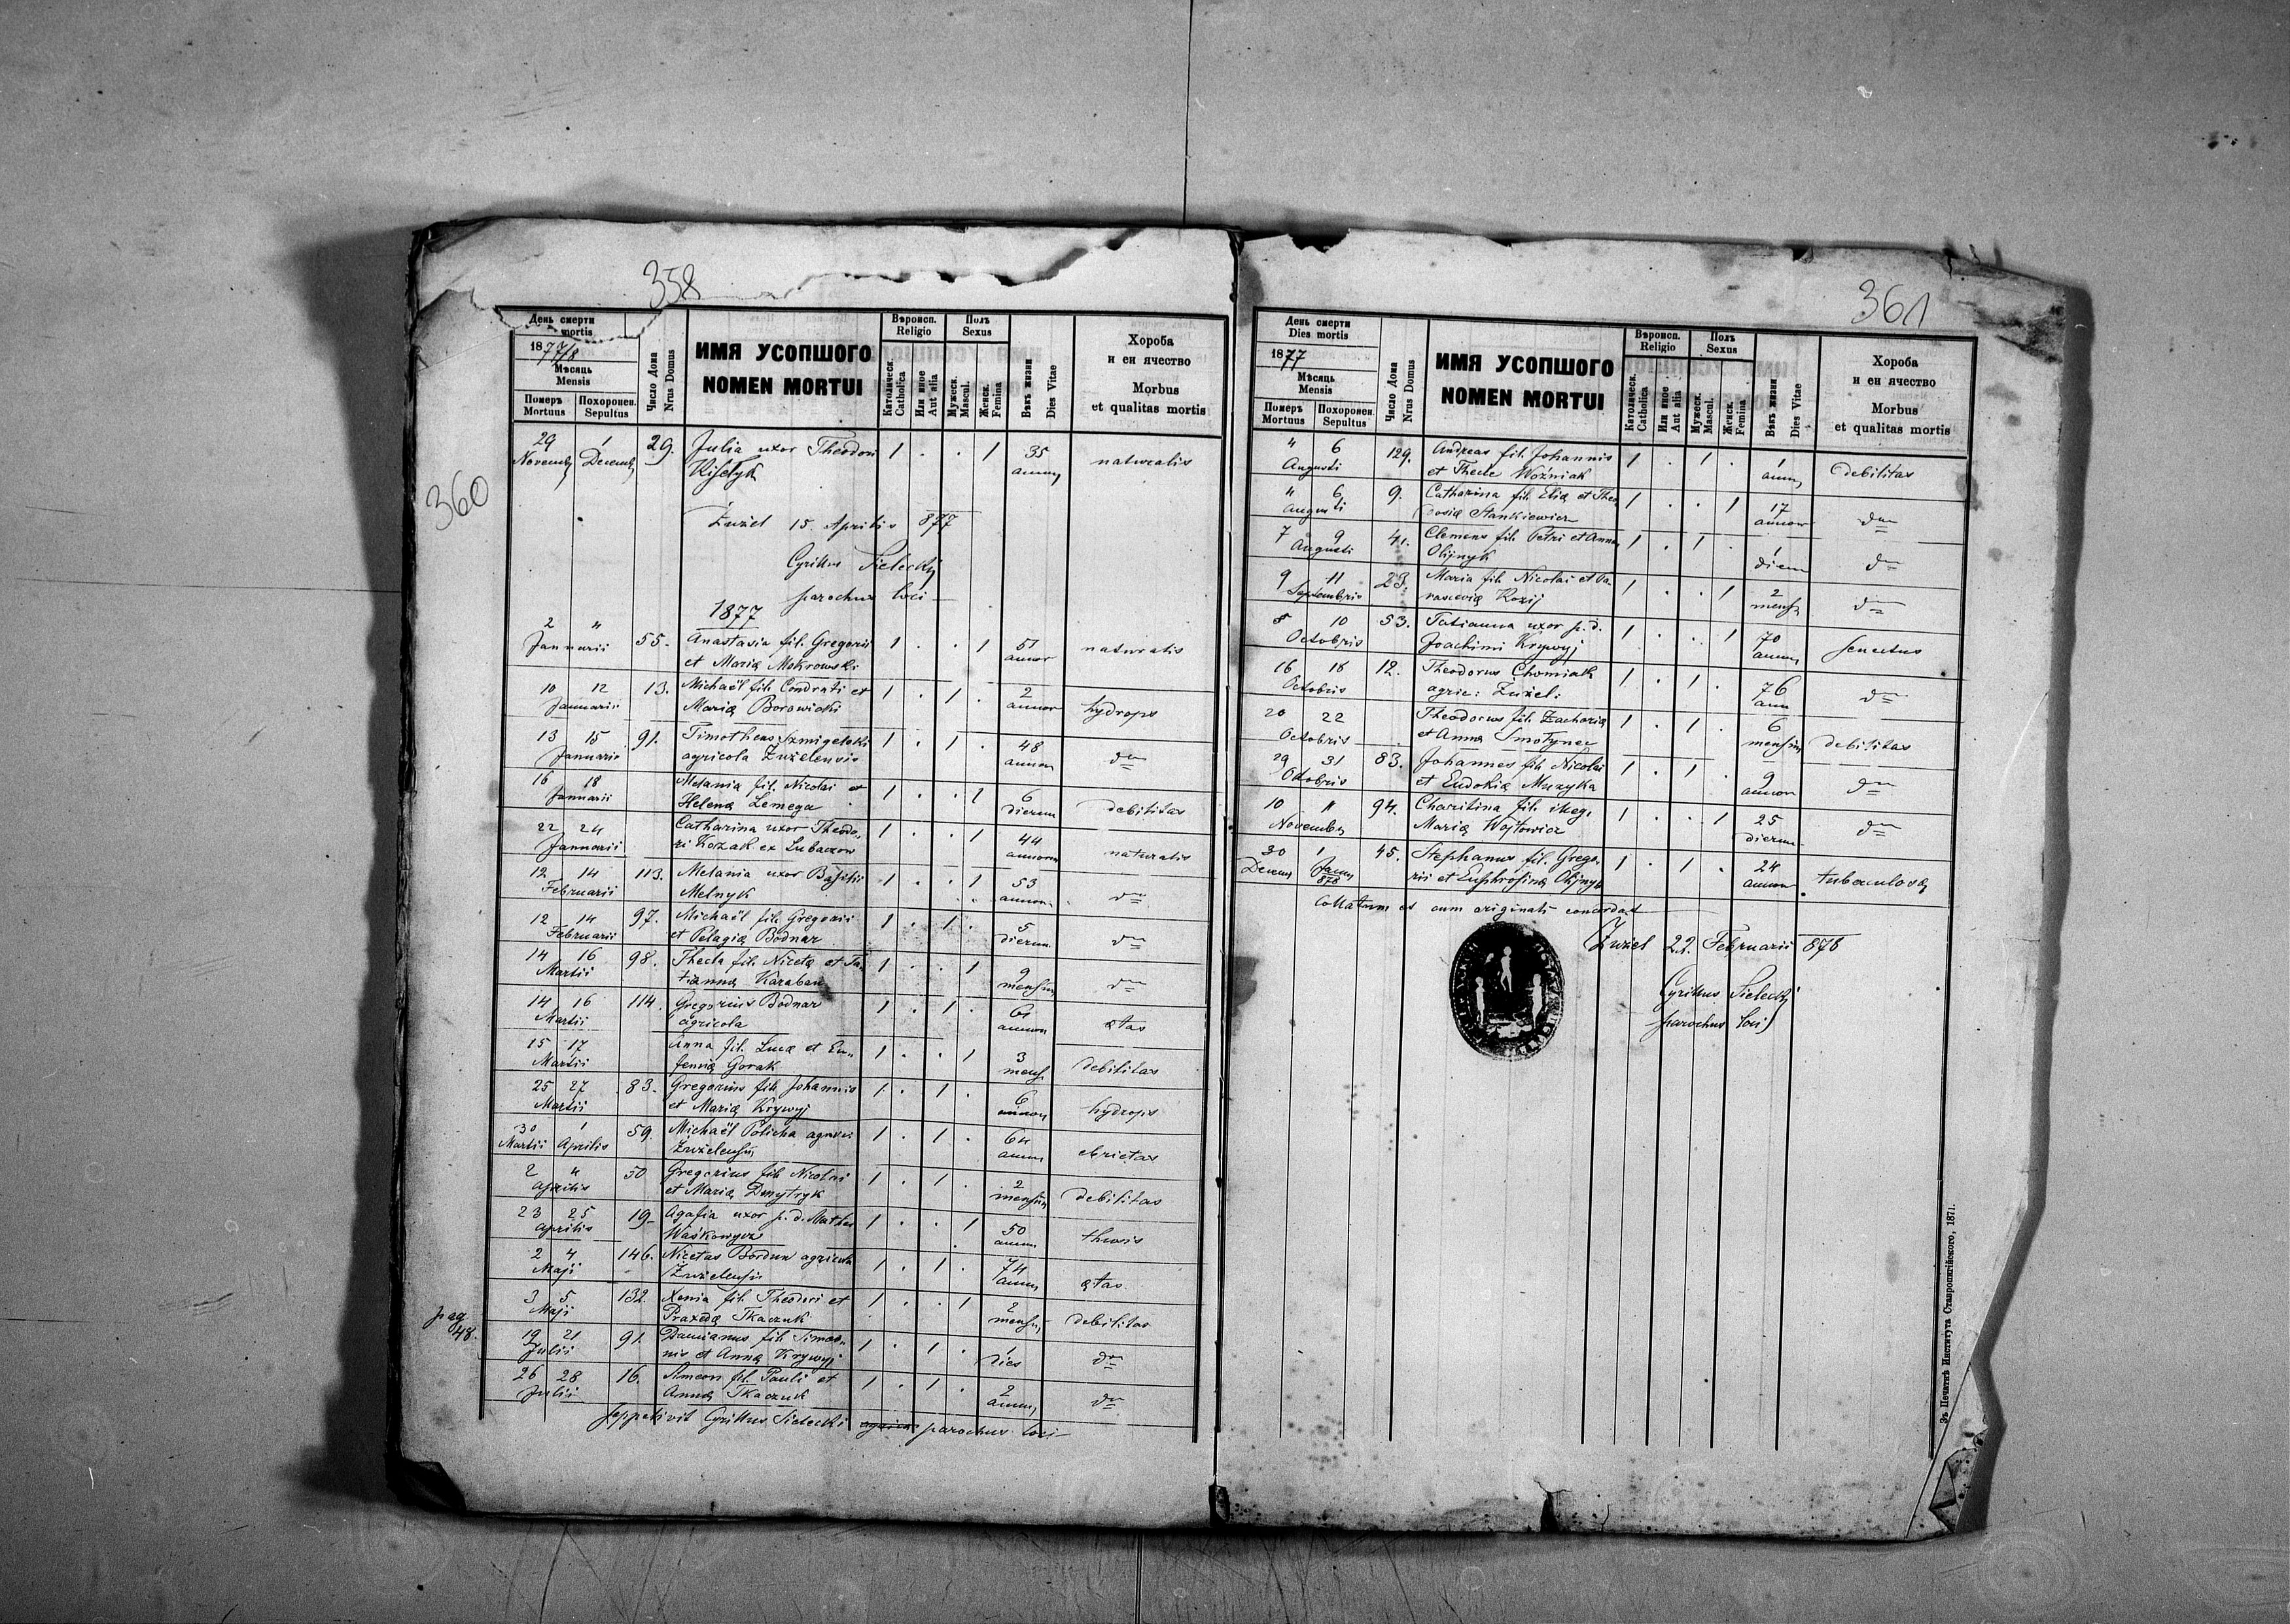 358
360
День смерти
mortis
1877/8
Мѣсяць
Mensis
Померъ
Mortuus
Похоронен.
Sepultus
Число Дома
Nrus Domus
ИМЯ УСОПШОГО
NOMEN MORTUI
Вѣроисп.
Religio
Католическ.
Catholica
Или иное
Aut alia
Полъ
Sexus
Мужеск.
Mascul.
Женск.
Femina
Вѣкъ жизни
Dies Vitae
Хороба
и еи ячество
Morbus
et qualitas mortis
29 1 29. Julia uxor Theodori 1 . . 1 35 naturalis
Novemb Decemb Kiselyk annor
Żużel 15 Aprilis 877
Cyrillus Sielecki
parochus loci
1877
2 4 55. Anastasia fil. Gregorii 1 . . 1 51 naturalis
Januarii et Maria Mokrowski annor
10 12 13. Michaël fil. Condrati et 1 . 1 . 2 hydrops
Januarii Maria Borowicki annor
13 15 91. Timotheus Szmigelski 1 . 1 . 48 dto
Januarii agricola Żużelensis annor
16 18 Melania fil. Nicolai et 1 . . 1 6 debilitas
Januarii Helena Lemega dierum
22 24 Catharina uxor Theodo- 1 . . 1 44 naturalis
Januarii ri Kozak ex Lubaczow annorum
12 14 113. Melania uxor Basilii 1 . . 1 53 dto
Februarii Melnyk annor
12 14 97. Michaël fil. Gregorii 1 . 1 . 5 dto
Februarii et Pelagia Bodnar dierum
14 16 98. Thecla fil. Niceta et Ta- 1 . . 1 9 dto
Martii tianna Karaban mensium
14 16 114. Gregorius Bodnar 1 . 1 . 61 ætas
Martii agricola annorum
15 17 Anna fil. Luca et Eu- 1 . . 1 3 debilitas
Martii fenia Gorak mens
25 27 83. Gregorius fil. Johannis 1 . 1 . 6 hydrops
Martii et Maria Krywyj annor
30 1 59. Michaël Policha agricol 1 . 1 . 64 ebrietas
Martii Aprilis Żużelensis annor
2 4 50 Gregorius fil. Nicolai 1 . 1 . 2 debilitas
Aprilis et Maria Dmytryk mensium
23 25 19. Agafia uxor p. d. Matthei 1 . . 1 50 thusis
Aprilis Waśkowycz annor
2 4 146. Nicetas Bordun agricola 1 . 1 . 74 ætas
Maji Żużelensis annor
3 5 132. Xenia fil. Theodori et 1 . . 1 2 debilitas
Maji Praxeda Tkaczuk mensium
pag
48.
19 21 91. Damianus fil. Simeo- 1 . 1 . 1 dto
Julii nis et Anna Krywyj dies
26 28 16. Simeon fil. Pauli et 1 . 1 . 2 dto
Julii Anna Tkaczuk annor
Seppelivit Cyrillus Sielecki parochus loci
361
День смерти
Dies mortis
1877
Мѣсяць
Mensis
Померъ
Mortuus
Похоронен.
Sepultus
Число Дома
Nrus Domus
ИМЯ УСОПШОГО
NOMEN MORTUI
Вѣроисп.
Religio
Католическ.
Catholica
Или иное
Aut alia
Полъ
Sexus
Мужеск.
Mascul.
Женск.
Femina
Вѣкъ жизни
Dies Vitae
Хороба
и еи ячество
Morbus
et qualitas mortis
4 6 129. Andreas fil. Johannis 1 . 1 . 1 debilitas
Augusti et Thecle Woźniak anni
4 6 9. Catharina fil. Elia et Theo- 1 . . 1 17 dto
Augusti dosia Stankiewicz annor
7 9 41. Clemens fil. Petri et Anna 1 . 1 . 1 dto
Augusti Olijnyk diem
9 11 23. Maria fil. Nicolai et Pa- 1 . . 1 2 dto
Septembris rascevia Kozij mens
8 10 53. Tatianna uxor p. d. 1 . . 1 70 senectus
Octobris Joachimi Krywyj annor
16 18 12. Theodorus Chomiak 1 . 1 . 76 dto
Octobris agric: Żużel: ann
20 22 Theodorus fil. Zacharia 1 . 1 . 6 debilitas
Octobris et Anna Smolynec mensium
29 31 83. Johannes fil. Nicolai 1 . 1 . 9 dto
Octobris et Eudokia Muzyka annor
10 11 94. Charitina fil. illeg. 1 . . 1 25 dto
Novembr Maria Wojtowicz dierum
30 1 45. Stephanus fil. Grego- 1 . 1 . 24 tuberculosa
Decem Janu 878 rii et Euphrosina Olijnyk annor
Collatum et cum originali concordat
Żużel 22. Februarii 878
Cyrillus Sielecki
parochus loci
Зъ Печатнѣ Института Ставропигійского, 1871.